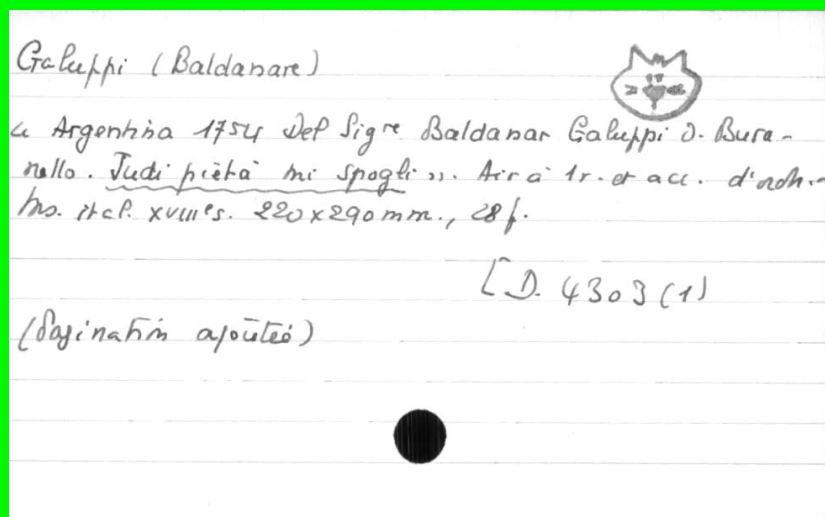 Galuppi (Baldanare)
« Argentina 1754 Del Sigre Baldanar Galuppi d. Bura-
nello. Tudi pietà mi spogli ». Air à 1 v. et acc. d'orch.-
Ms. ital. XVIIIe s. 220 x 290 mm., 28 f.
[D. 4303 (1)
(Pagination ajoutée)